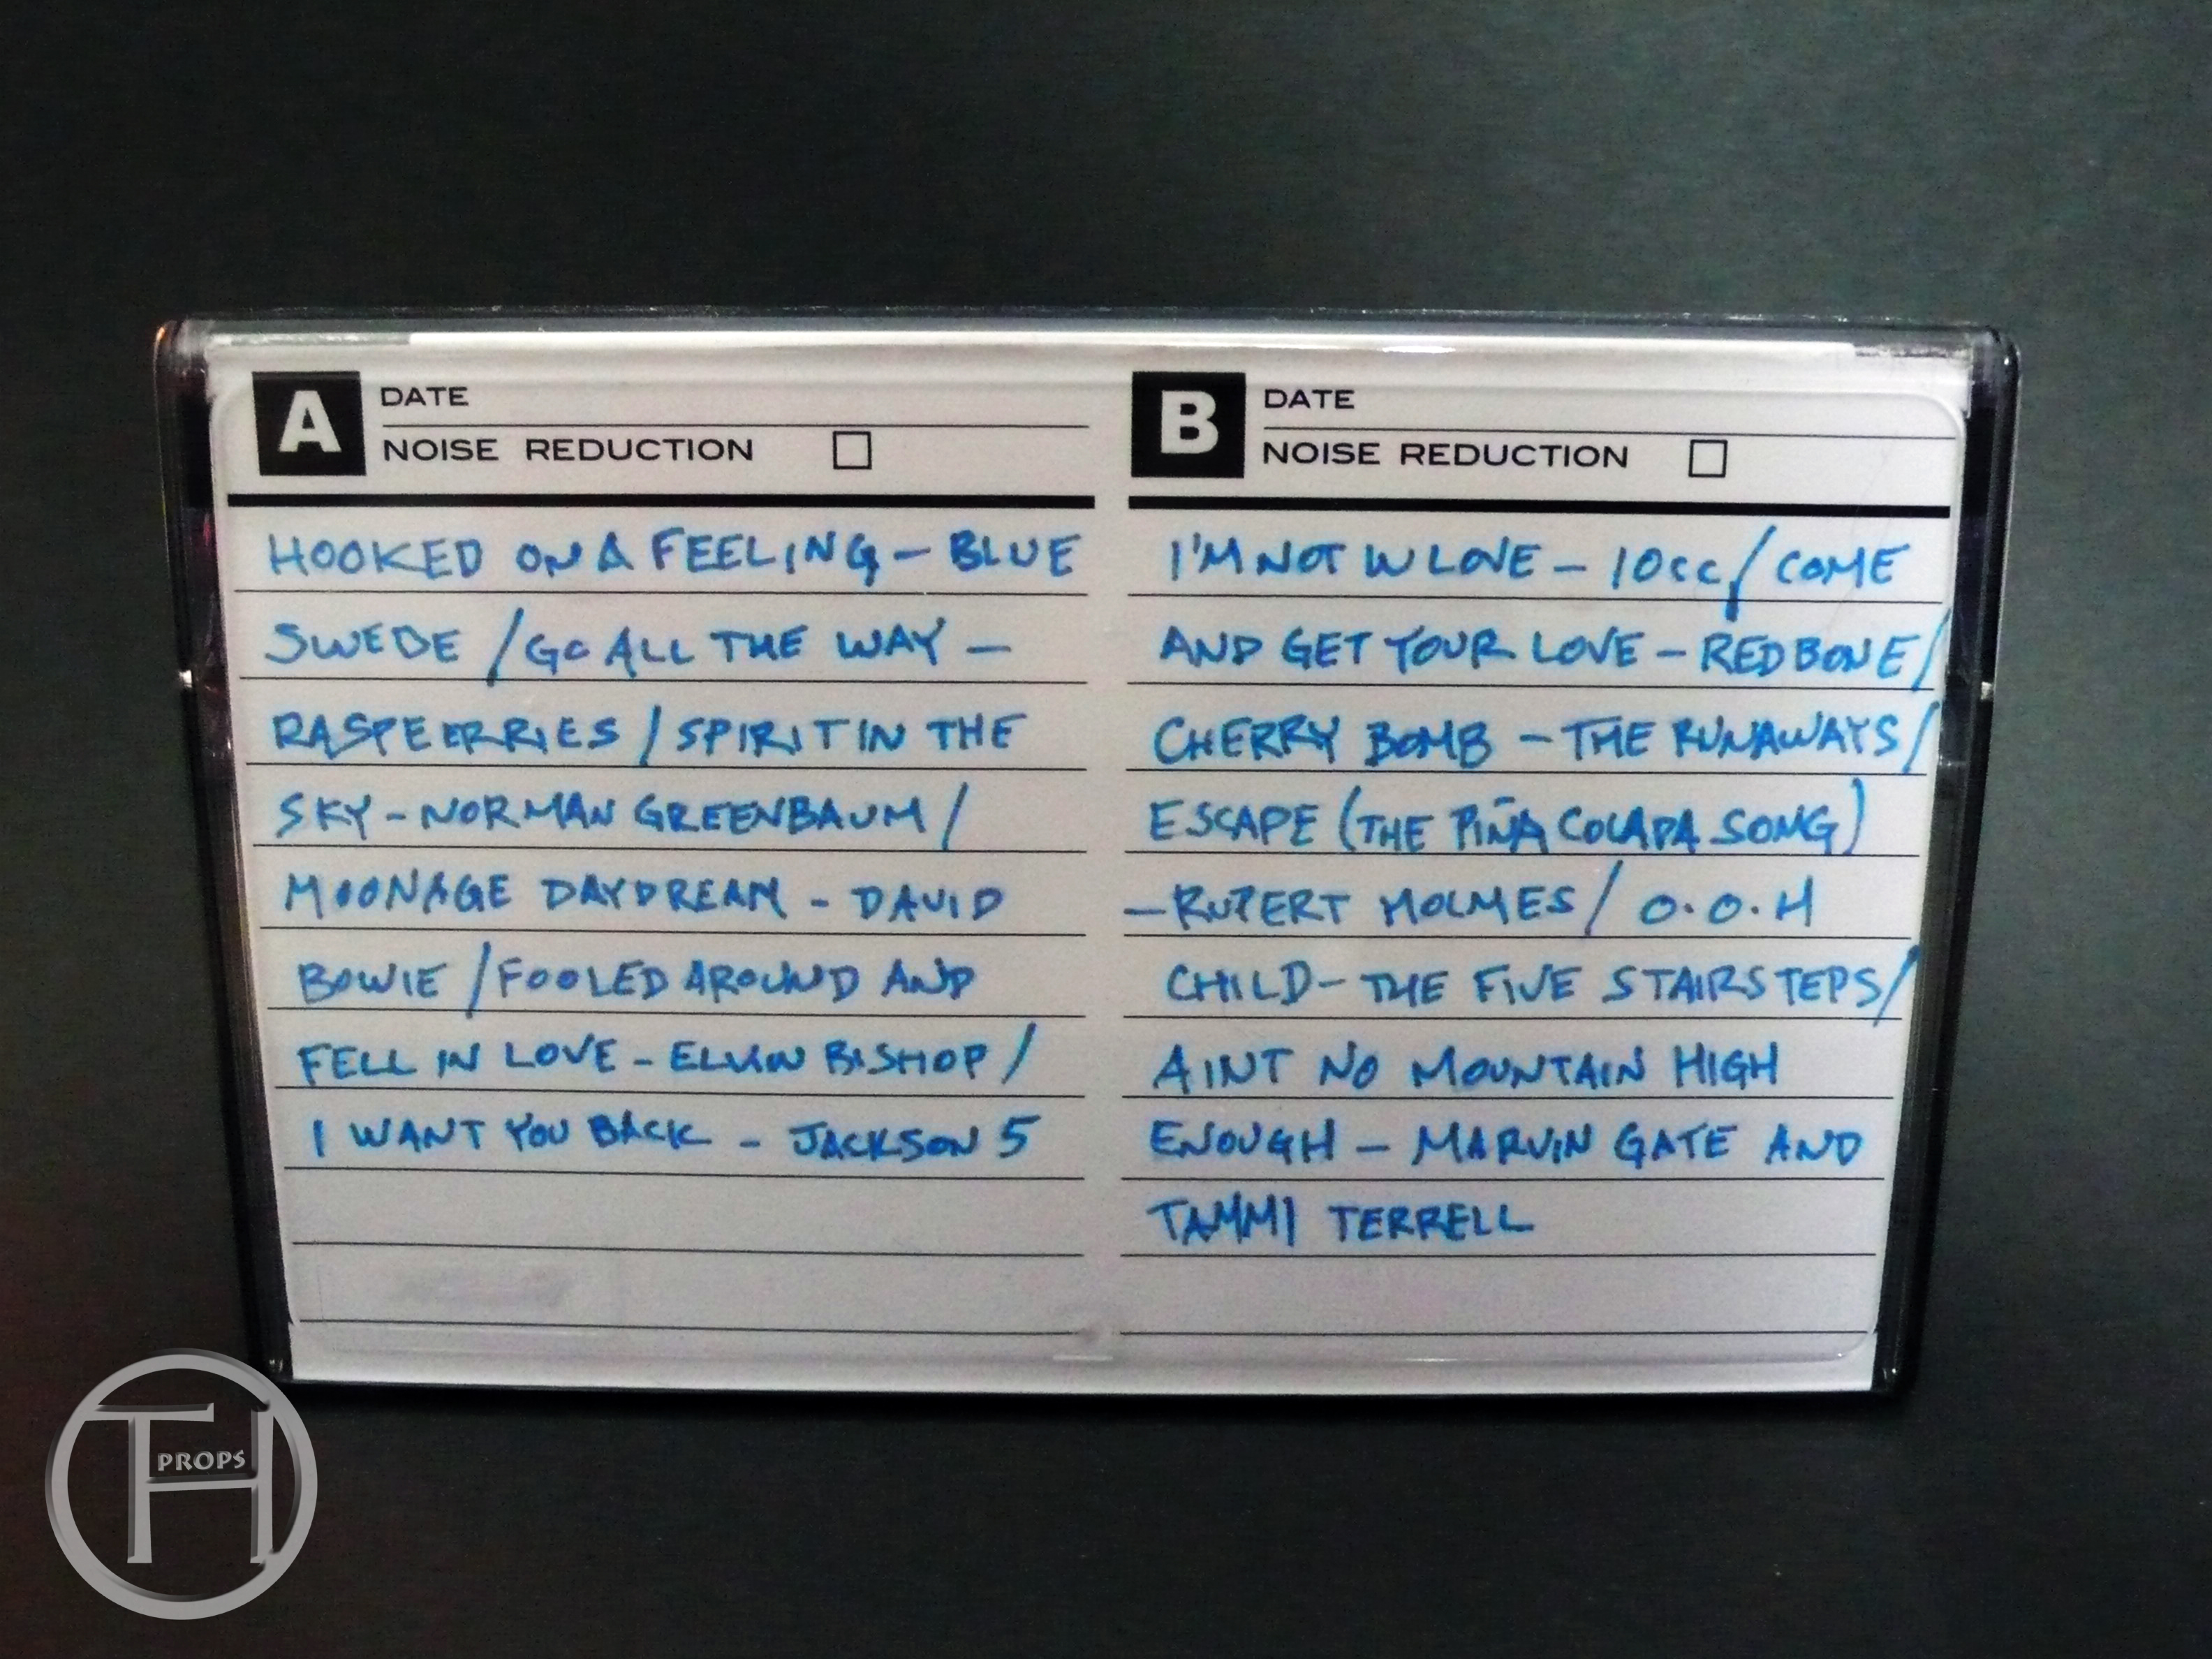 A DATE
NOISE REDUCTION
HOOKED ON A FEELING - BLUE
SWEDE / GO ALL THE WAY -
RASPEERRIES / SPIRIT IN THE
SKY - NORMAN GREENBAUM /
MOONAGE DAYDREAM - DAVID
BOWIE / FOOLED AROUND AND
FELL IN LOVE - ELVIN BISHOP /
I WANT YOU BACK - JACKSON 5
B DATE
NOISE REDUCTION
I'M NOT IN LOVE - 10cc / COME
AND GET YOUR LOVE - REDBONE /
CHERRY BOMB - THE RUNAWAYS /
ESCAPE (THE PIÑA COLADA SONG)
- RUPERT HOLMES / O.O.H
CHILD - THE FIVE STAIRSTEPS /
AINT NO MOUNTAIN HIGH
ENOUGH - MARVIN GAYE AND
TAMMI TERRELL
TH PROPS